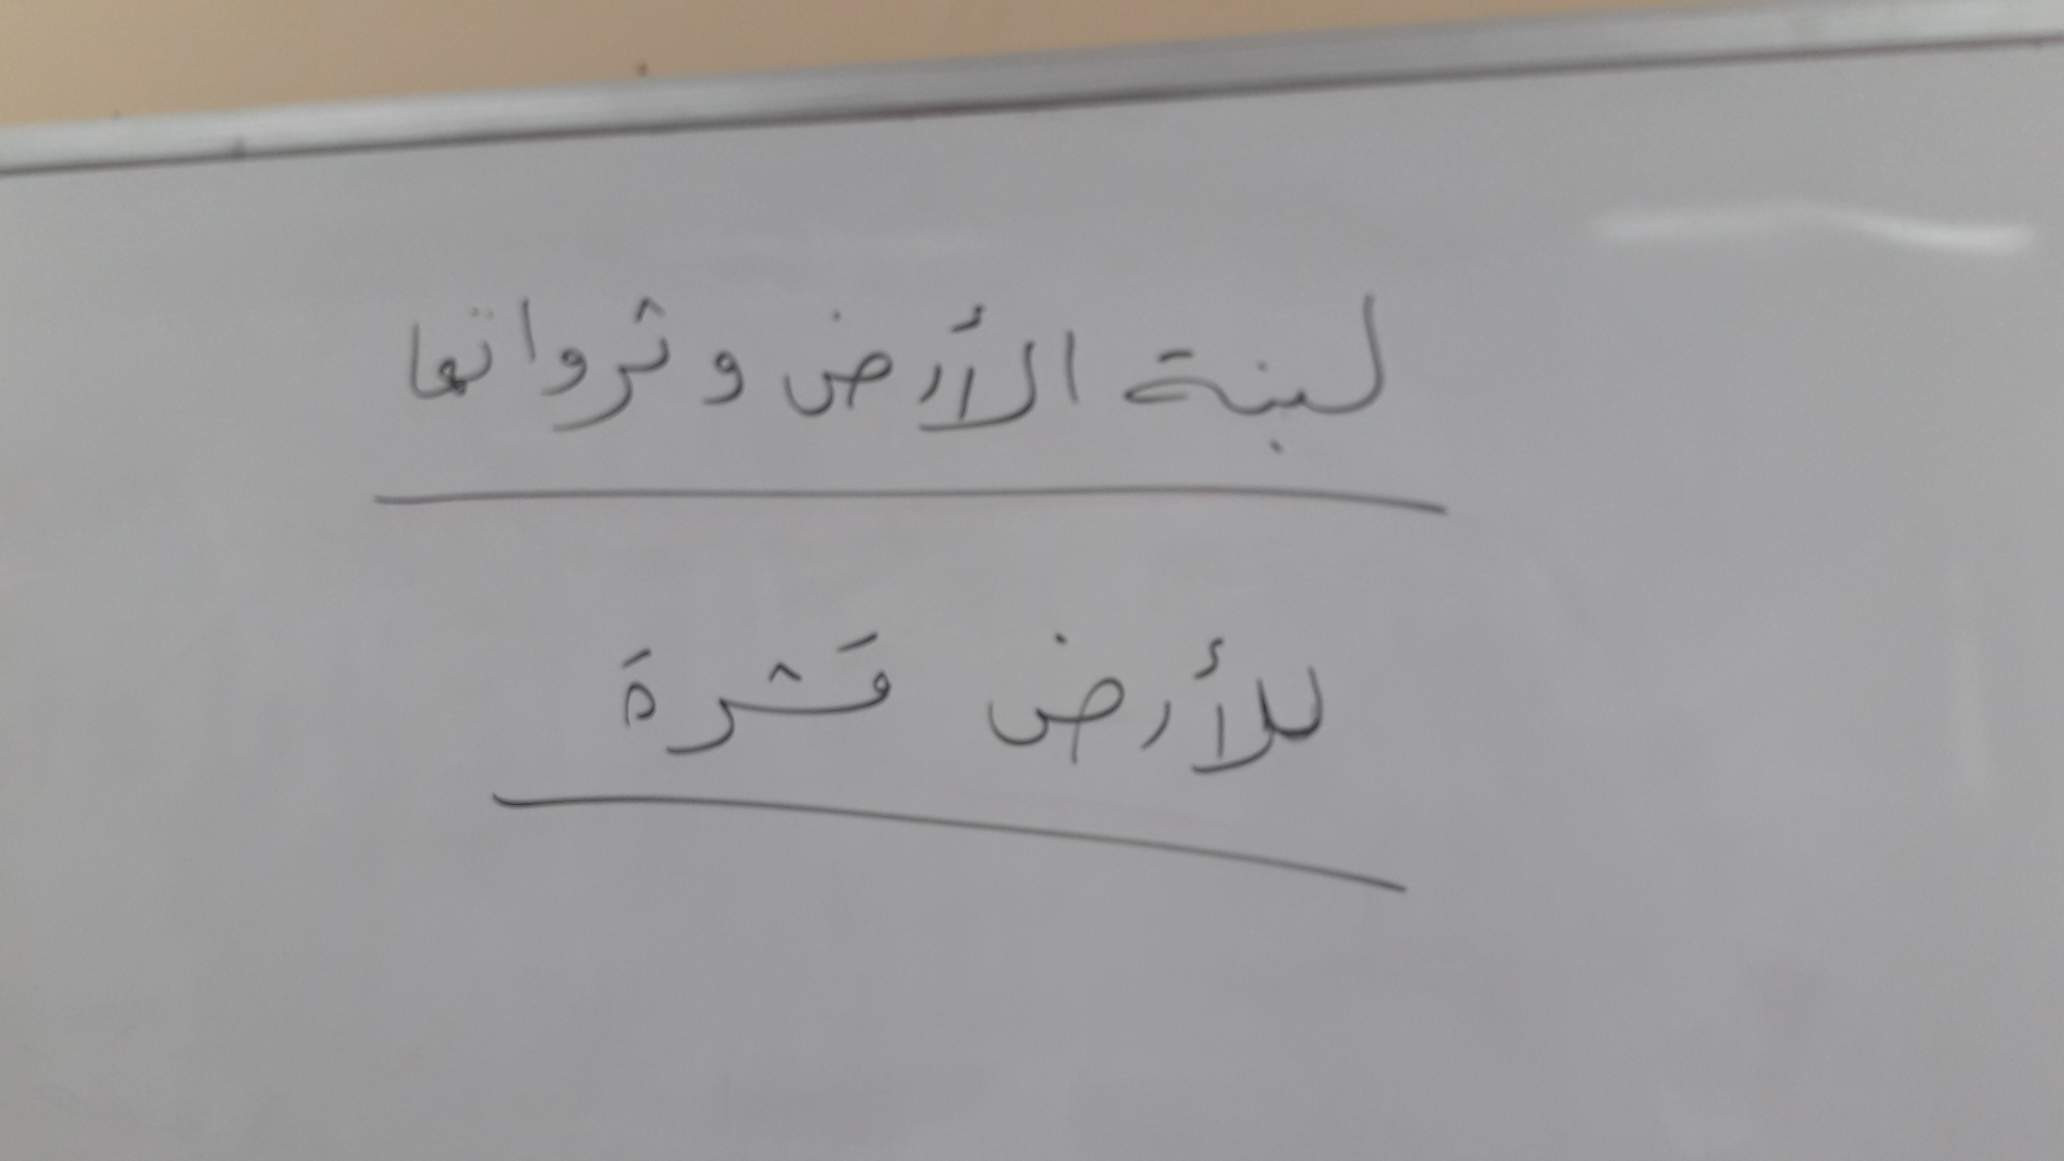 لبنة الأرض وثرواتها
للأرض قشرة